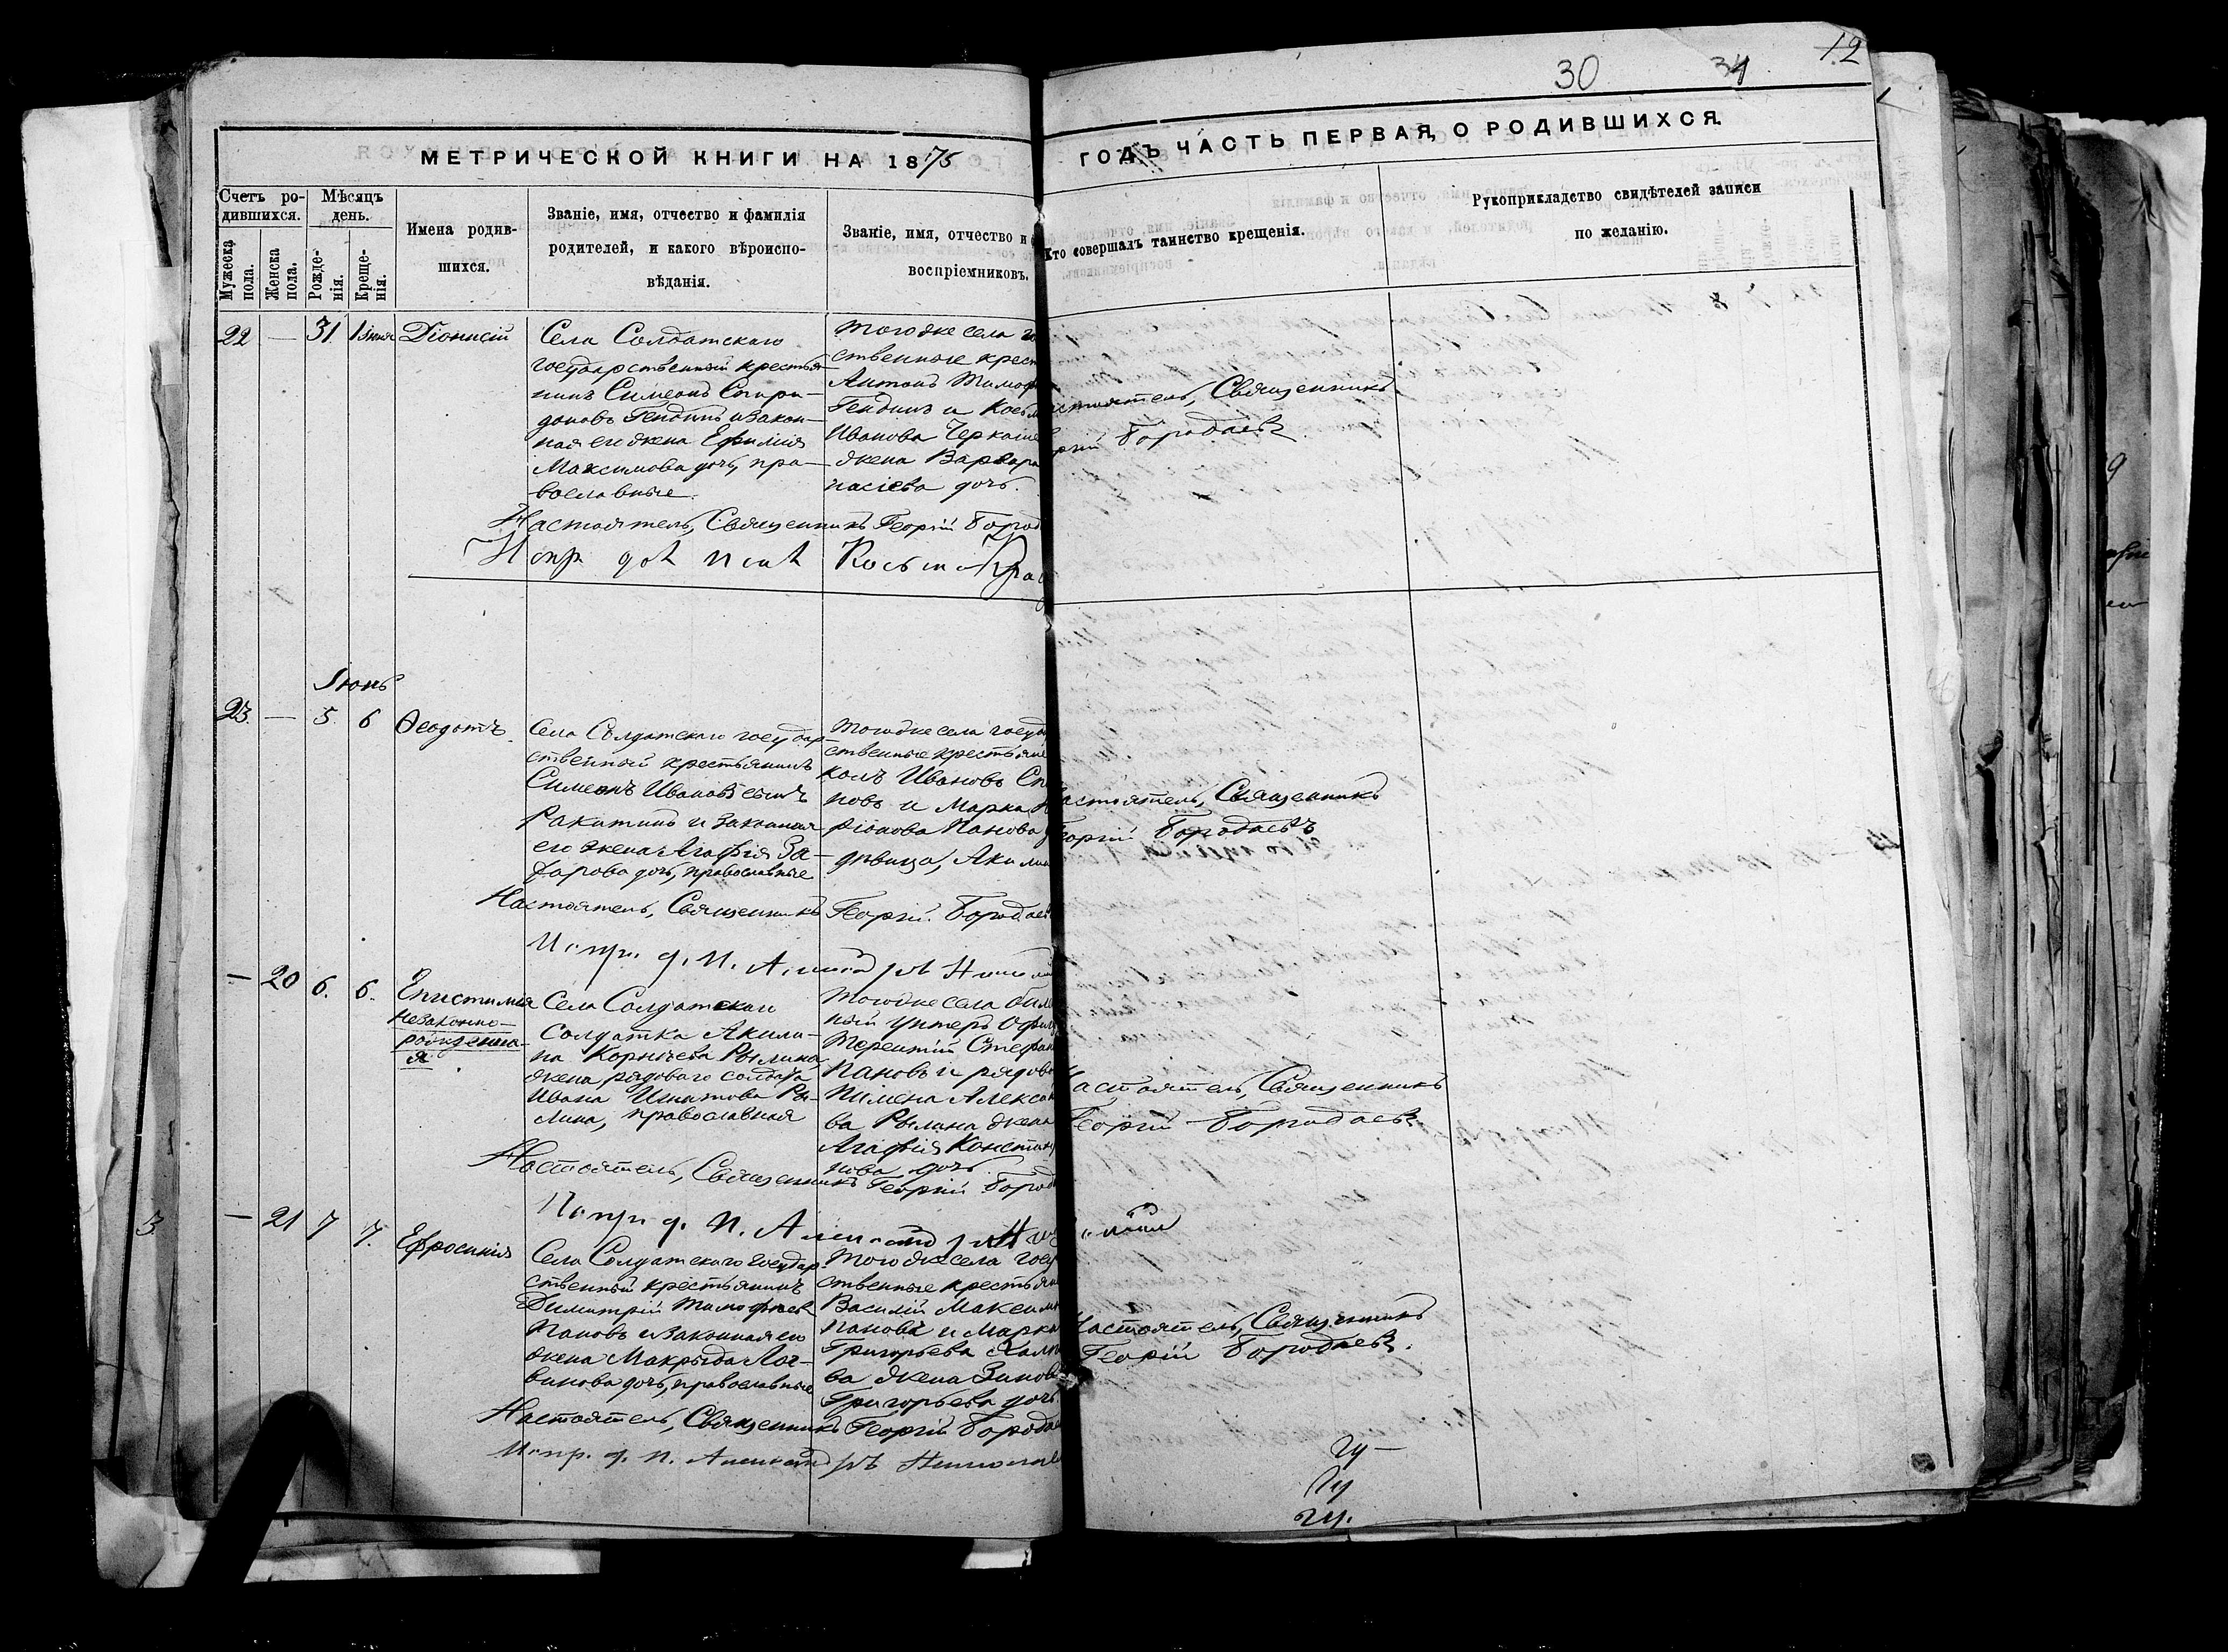 30 34 12
МЕТРИЧЕСКОЙ КНИГИ НА 1875
ГОДЪ ЧАСТЬ ПЕРВАЯ, О РОДИВШИХСЯ.
Счетъ ро-
дившихся.
Мужеска
пола.
Женска
пола.
Мѣсяцъ
день.
Рожде-
нія.
Креще-
нія.
Имена родив-
шихся.
Званіе, имя, отчество и фамилія
родителей, и какого вѣроиспо-
вѣданія.
Званіе, имя, отчество и
воспріемниковъ.
Кто совершалъ таинство крещенія.
Рукоприкладство свидѣтелей записи
по желанію.
22 — 31 1 Іюня Діонисій
Села Солдатскаго
государственный крестья-
нинъ Симеонъ Спири-
доновъ Гендинъ и закон-
ная его жена Ефимія
Максимова дочь, пра-
вославные.
Тогоже села го
ственные крест
Антонъ Тимоф
Гендинъ и Косьм
Иванова Черкаше
жена Варвара
насіева дочь.
астоятель, Священникъ
ргій Бородаевъ.
Настоятель, Священникъ Георгій Бород
Іюнь
23. — 5. 6 Ѳеодотъ.
Села Солдатскаго государ-
ственный крестьянинъ
Симеонъ Ивановъ сынъ
Ракитинъ и законная
его жена Агафія За-
харова дочь, православные
Тогоже села госуда
ственные крестьяне
колъ Ивановъ Сп
новъ и Марка
ріонова Панова
дѣвица, Акилин
астоятель, Священникъ
Георгій Бородаевъ
Настоятель, Священникъ Георгій Бородаев
— 20 6. 6. Епистимія
незаконно-
рожденна-
я
Села Солдатскаго
солдатка Акили-
на Корнѣева Рылина,
жена рядоваго солдата
Ивана Игнатова Ры-
лина, православная
Тогоже села биле
ный унтеръ офиц
Терентій Стефан
Пановъ и рядов
Пимена Алексан
ва Рылина жена
Агафія Константи
нова дочь.
астоятель, Священникъ
Георгій Бородаевъ
Настоятель, Священникъ Георгій Бород
— 21 7 7. Ефросинія
Села Солдатскаго государ-
ственный крестьянинъ
Димитрій Тимофѣевъ
Пановъ и законная его
жена Макрида Лог-
винова дочь, православные
Тогоже села госу
ственные крестьян
Василій Максим
Пановъ и Марка
Григорьева Хали
ва жена Зинов
Григорьева дочь.
Настоятель, Священникъ
Георгій Бородаевъ.
Настоятель, Священникъ Георгій Борода